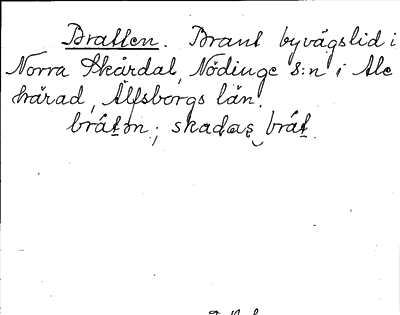 Bratten. Brant byvägslid i
Norra Skårdal, Nödinge s:n i Ale
härad, Älfsborgs län.
brátən; skadaş brát